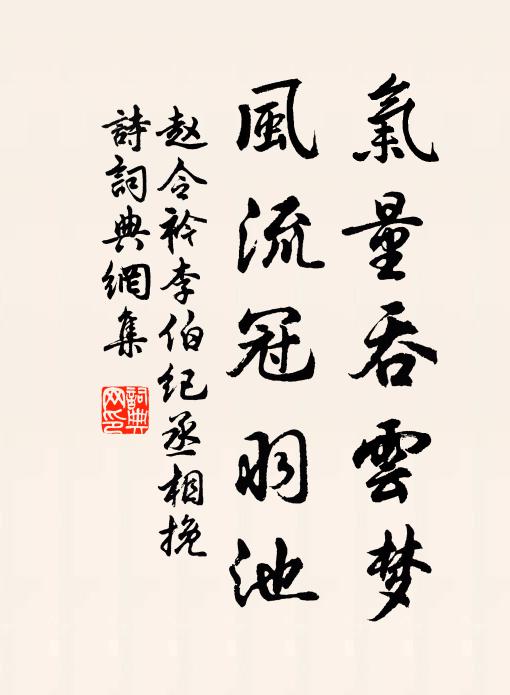 氣量吞雲梦
風流冠羽池
赵令衿李伯纪丞相挽
詩詞典網集
詞典網印